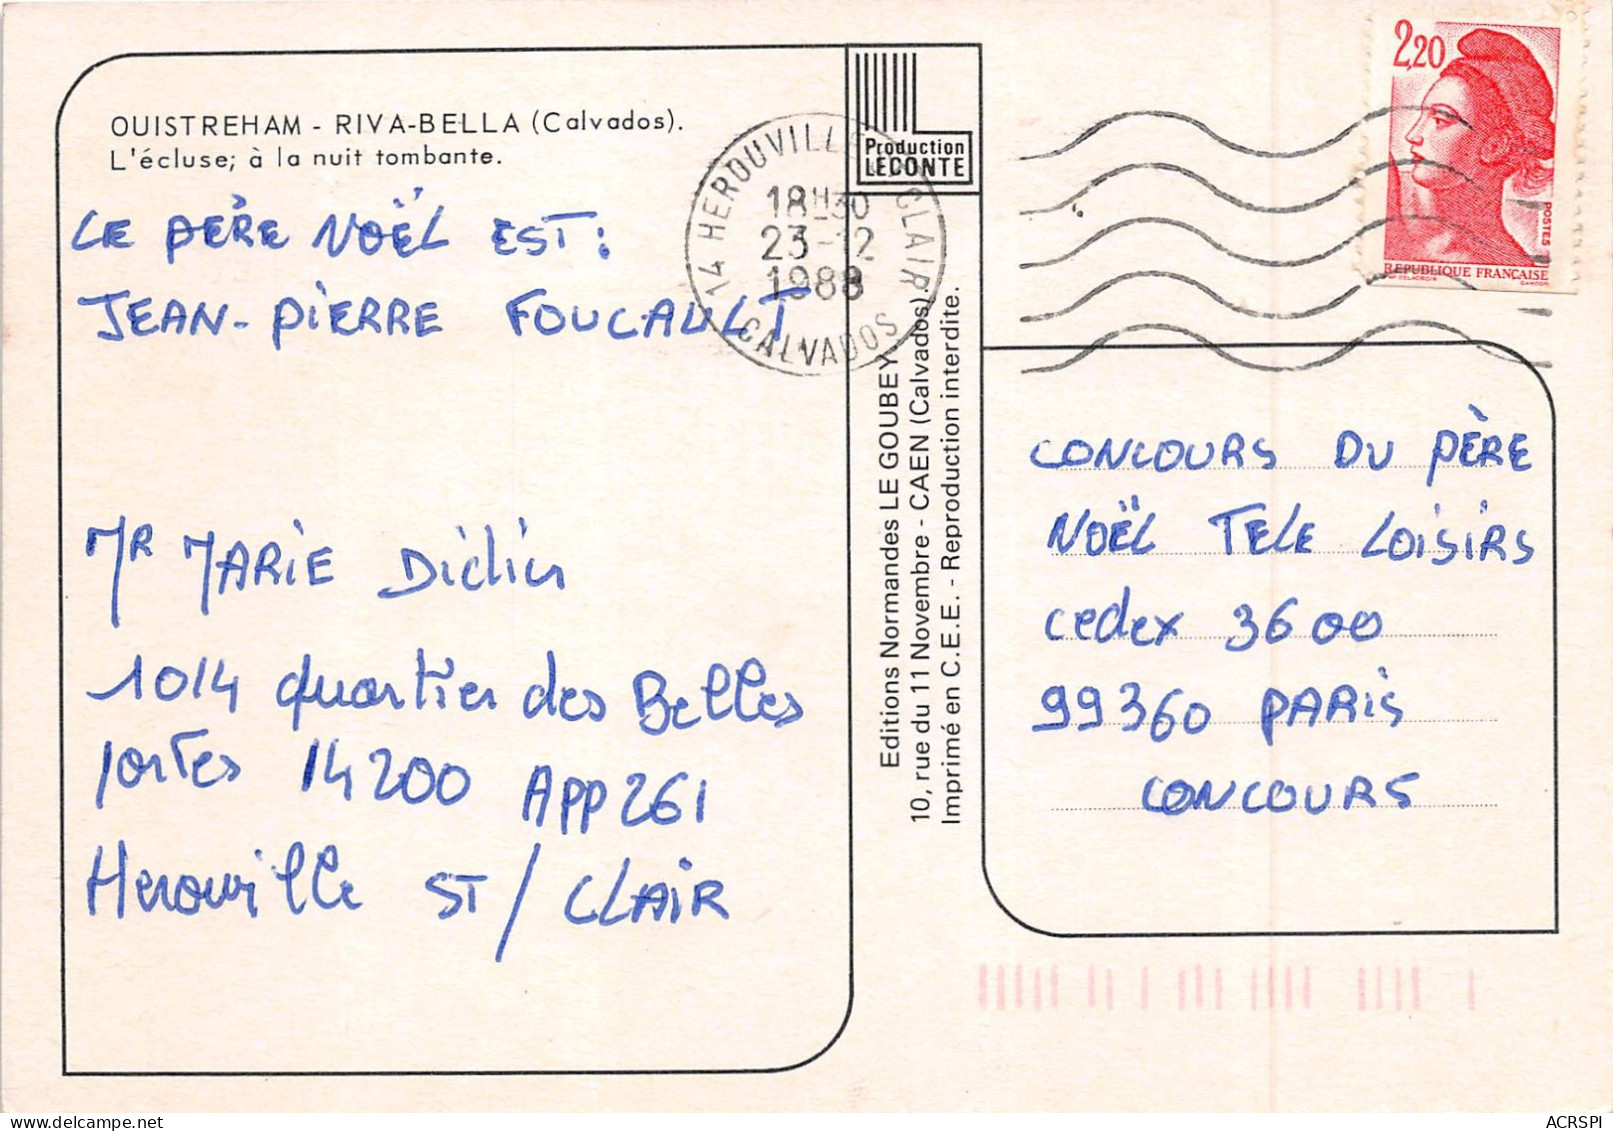 OUISTREHAM - RIVA-BELLA (Calvados).
L'écluse; à la nuit tombante.
LE PÈRE NOËL EST:
JEAN-PIERRE FOUCAULT
Mr MARIE Didier
1014 quartier des Belles
portes 14200 APP 261
Herouville ST/CLAIR
Production
LECONTE
14 HEROUVILLE ST CLAIR
18H30
23-12
1988
CALVADOS
Editions Normandes LE GOUBEY
10, rue du 11 Novembre - CAEN (Calvados)
Imprimé en C.E.E. - Reproduction interdite.
2,20
POSTES
REPUBLIQUE FRANÇAISE
CONCOURS DU PÈRE
NOËL TELE LOISIRS
cedex 3600
99360 PARIS
CONCOURS
ACRSPI